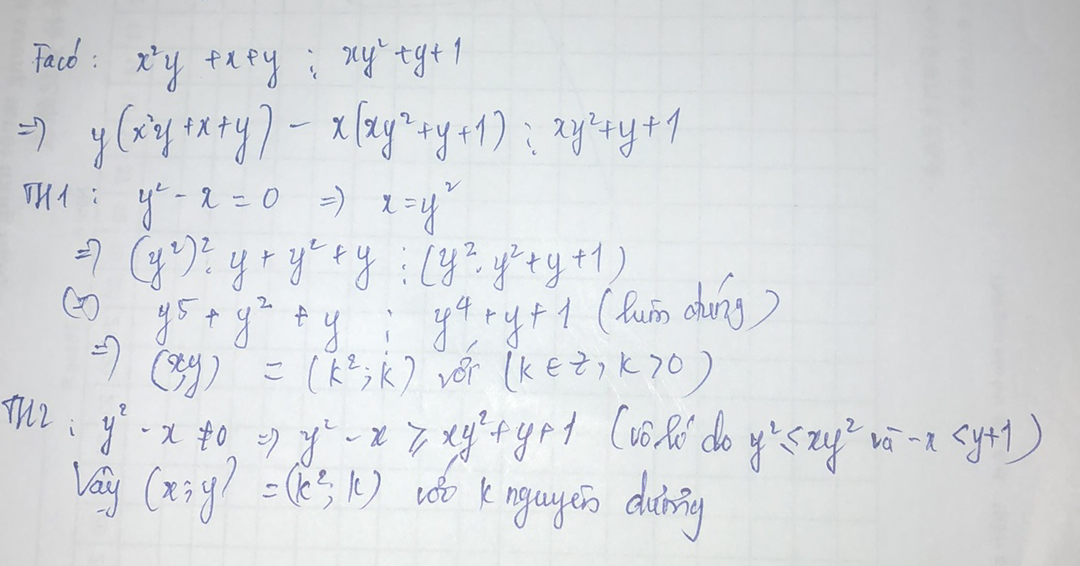 Ta có : x²y + x + y ⋮ xy² + y + 1
⇒ y(x²y + x + y) - x(xy² + y + 1) ⋮ xy² + y + 1
TH1 : y² - x = 0 ⇒ x = y²
⇒ (y²)².y + y² + y ⋮ (y².y² + y + 1)
⇔ y⁵ + y² + y ⋮ y⁴ + y + 1 (luôn đúng)
⇒ (x;y) = (k²; k) với (k ∈ Z, k > 0)
TH2 : y² - x ≠ 0 ⇒ y² - x ⩾ xy² + y + 1 (vô lí do y² ≤ xy² và -x < y+1)
Vậy (x;y) = (k²; k) với k nguyên dương